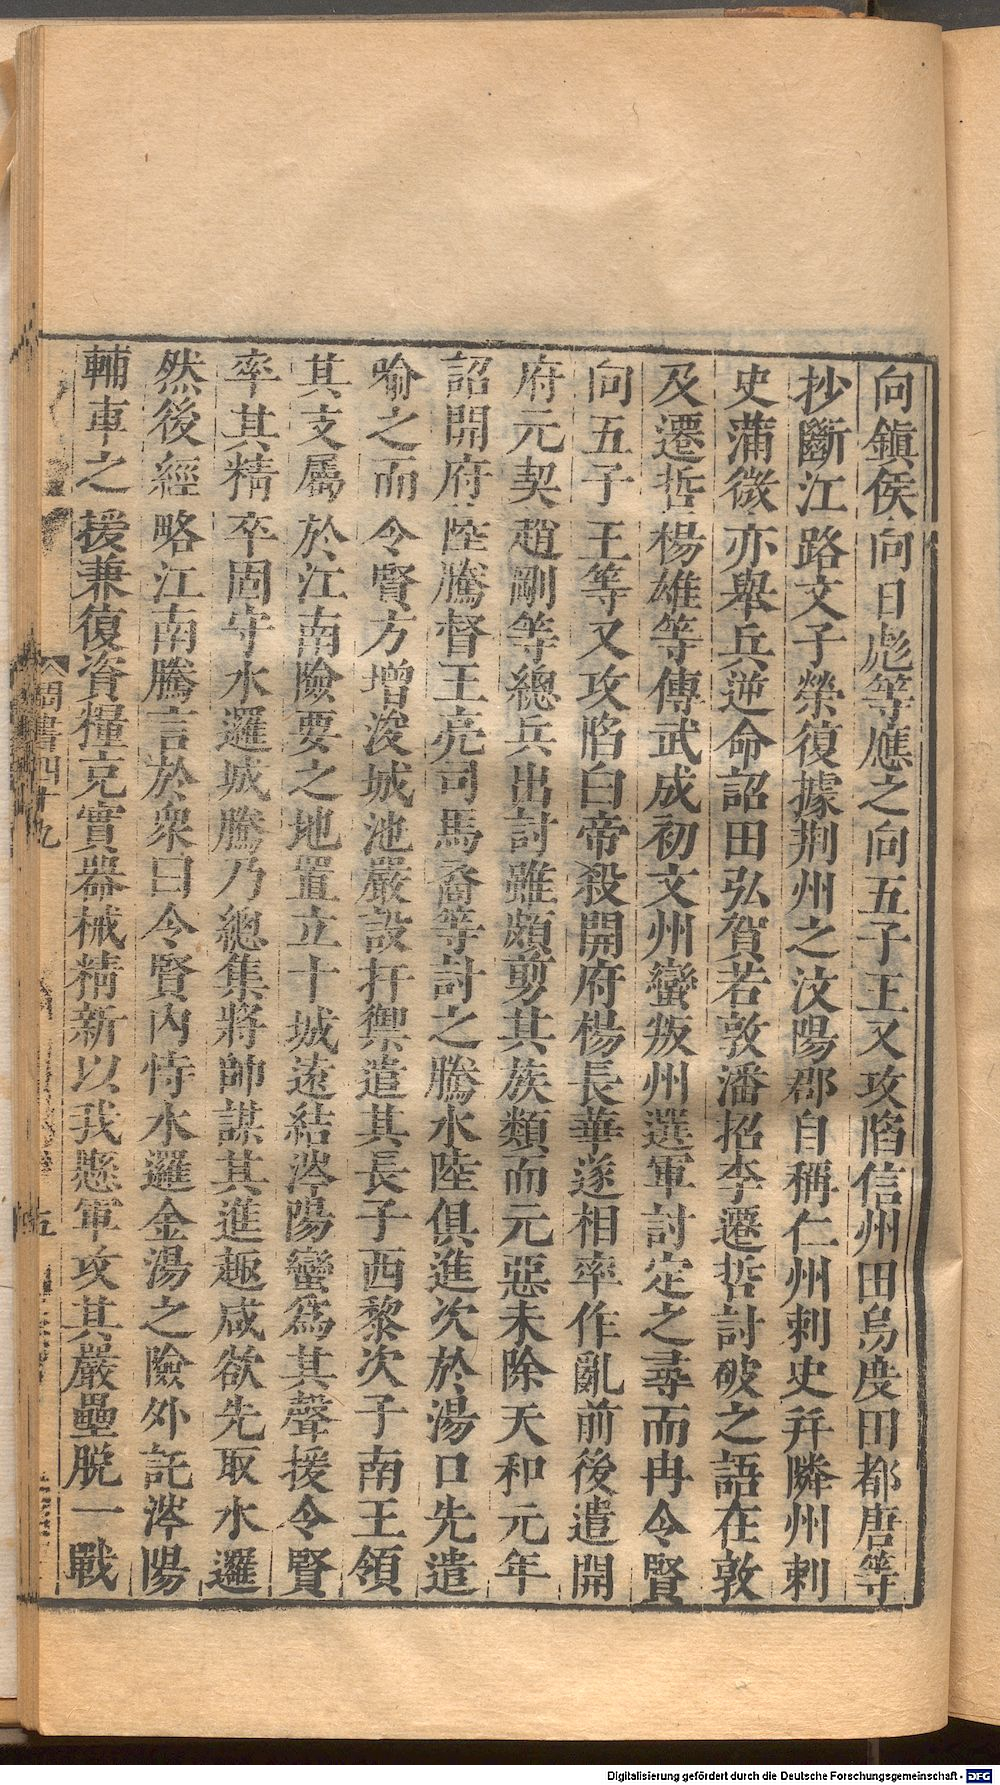 向鎮侯向日彪等應之向五子王又攻陷信州田烏度田都唐等
抄斷江路文子榮復據荆州之汶陽郡自稱仁州刺史并隣州刺
史蒲微亦舉兵逆命詔田弘賀若敦潘招李遷哲討破之語在敦
及遷哲楊雄等傳武成初文州蠻叛州選軍討定之尋而冉令賢
向五子王等又攻陷白帝殺開府楊長華遂相率作亂前後遣開
府元契趙剛等總兵出討雖頗剪其族類而元惡未除天和元年
詔開府陸騰督王亮司馬裔等討之騰水陸俱進次於湯口先遣
喻之而令賢方增浚城池嚴設扞禦遣其長子西黎次子南王領
其支屬於江南險要之地置立十城遠結涔陽蠻爲其聲援令賢
率其精卒固守水邏城騰乃總集將帥謀其進趣咸欲先取水邏
然後經略江南騰言於衆曰令賢內恃水邏金湯之險外託涔陽
輔車之援兼復資糧充實器械精新以我懸軍攻其嚴壘脫一戰
周書四十九
五
Digitalisierung gefördert durch die Deutsche Forschungsgemeinschaft - DFG